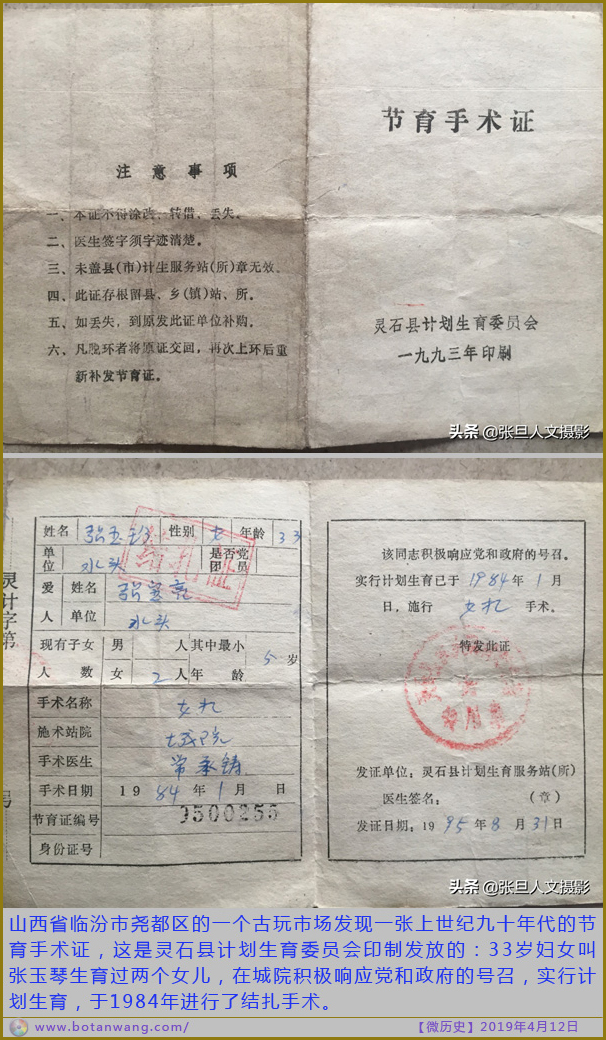 节育手术证
注意事项
一、本证不得涂改、转借、丢失。
二、医生签字须字迹清楚。
三、未盖县(市)计生服务站(所)章无效。
四、此证存根留县、乡(镇)站、所。
五、如丢失，到原发此证单位补购。
六、凡脱环者将原证交回，再次上环后重
新补发节育证。
灵石县计划生育委员会
一九九三年印刷
头条 @张旦人文摄影
灵计字第
号
姓名 张玉琴 性别 女 年龄 33
单位 水头 是否党团员
爱人 姓名 张宽亮
单位 水头
现有子女人数 男 人 女 2人 其中最小年龄 5岁
手术名称 女扎
施术站院 城院
手术医生
手术日期 1984年1月 日
节育证编号 0500255
身份证号
该同志积极响应党和政府的号召。
实行计划生育已于1984年1月
日，施行 女扎 手术。
特发此证
专用章
发证单位：灵石县计划生育服务站(所)
医生签名： (章)
发证日期：1995年8月31日
头条 @张旦人文摄影
山西省临汾市尧都区的一个古玩市场发现一张上世纪九十年代的节
育手术证，这是灵石县计划生育委员会印制发放的：33岁妇女叫
张玉琴生育过两个女儿，在城院积极响应党和政府的号召，实行计
划生育，于1984年进行了结扎手术。
www.botanwang.com/
【微历史】2019年4月12日